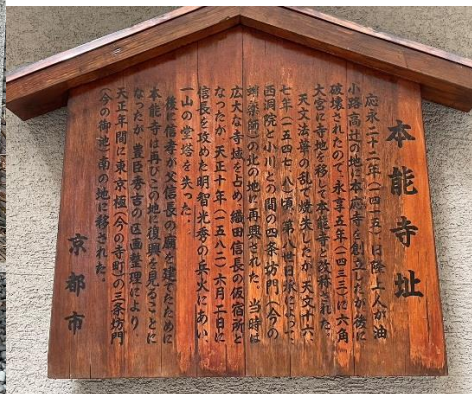 本能寺址
応永二十二年（一四一五）日隆上人が油
小路高辻の地に本応寺を創立したが後に
破壊されたので、永享五年（一四三三）に六角
大宮に寺地を移して本能寺と改称された。
天文法華の乱で焼失したが天文十六、
七年（一五四七、八）頃、第八世日承によって、
西洞院と小川との間の四条坊門（今の
蛸薬師）の北の地に再興された。当時は
広大な寺域を占め、織田信長の仮宿所と
なったが、天正十年（一五八二）六月二日に
信長を攻めた明智光秀の兵火にあい
一山の堂塔を失った。
後に信孝が父信長の廟を建てたために
本能寺は再びこの地に復興を見ることに
なったが、豊臣秀吉の区画整理により
天正年間に東京極（今の寺町）の三条坊門
（今の御池）南の地に移された。
京都市